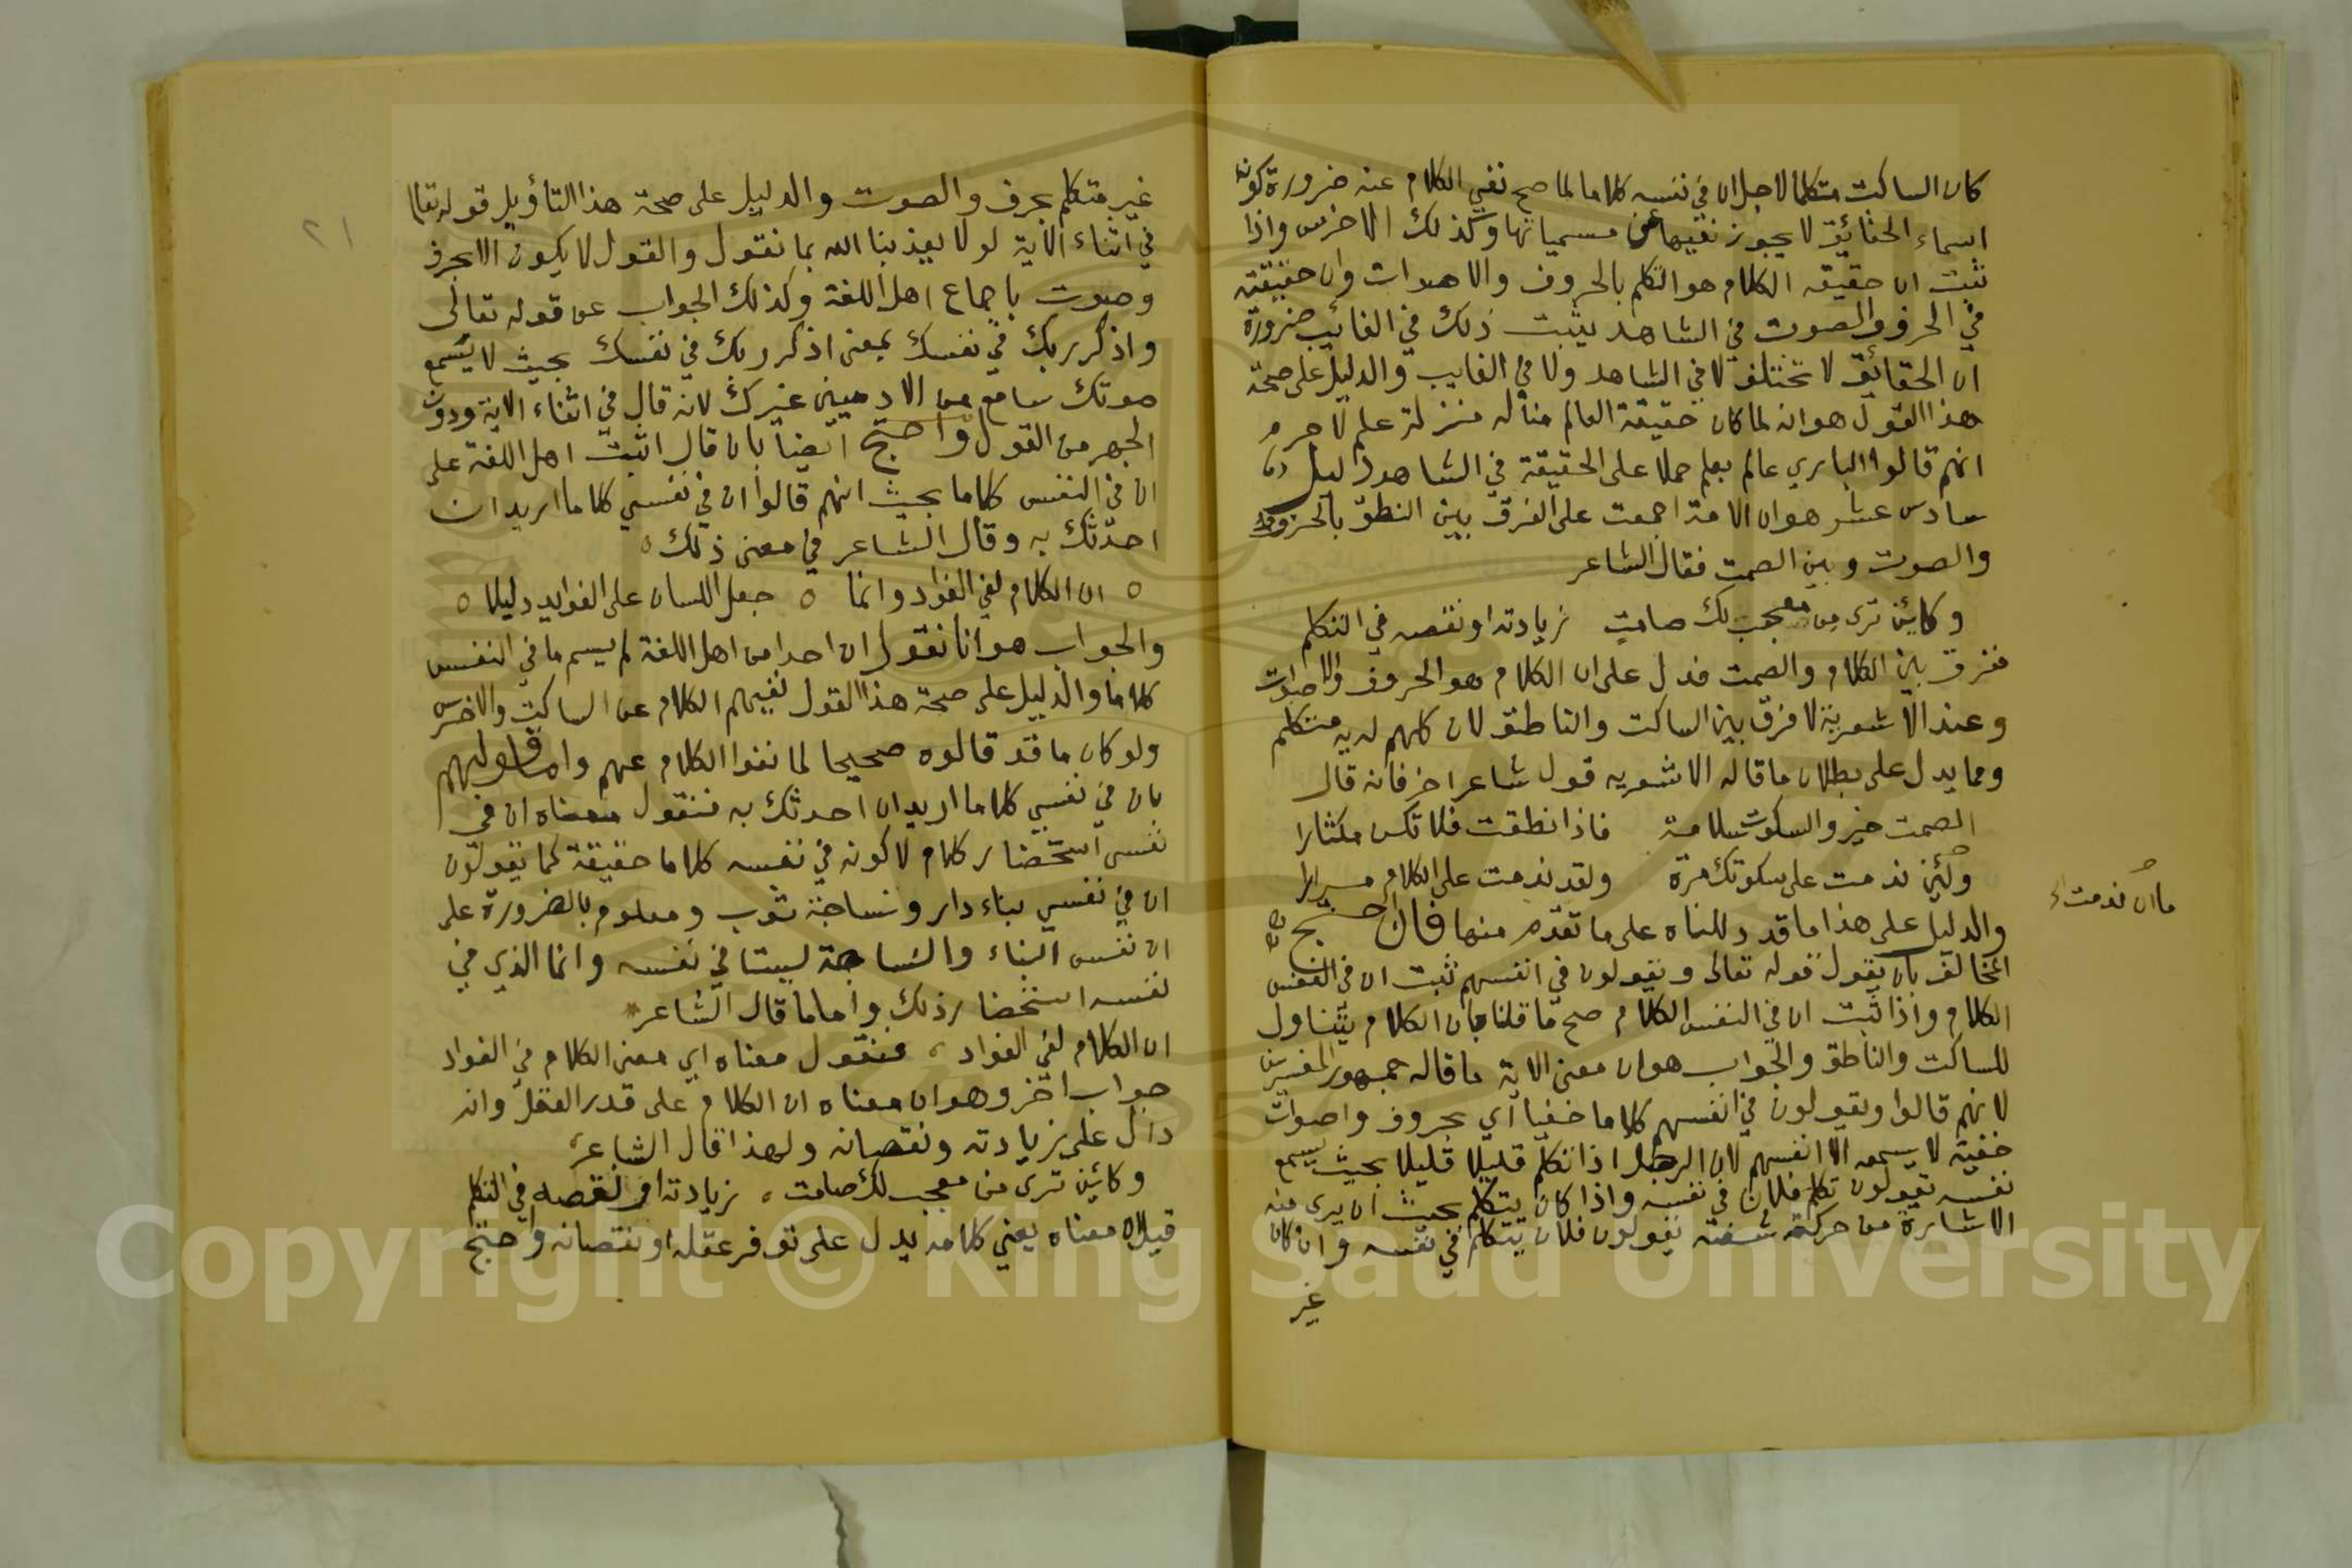 كان الساكت متكلما لاجل ان في نفسه كلاما لما صح نفي الكلام عنه ضرورة كونه
اسماء الحقائق لا يجوز نفيها عن مسمياتها وكذلك الاخرس واذا
ثبت ان حقيقه الكلام هو التكلم بالحروف والاصوات وان حقيقته
في الحرف والصوت في الشاهد يثبت ذلك في الغائب ضرورة
ان الحقائق لا تختلف لا في الشاهد ولا في الغايب والدليل على صحة
هذا القول هو انه لما كان حقيقة العالم من له منزلة علم لا جرم
انهم قالوا الباري عالم بعلم حملا على الحقيقة في الشاهد دليل
سادس عشر هو ان الامة اجمعت على الفرق بين النطق بالحروف
والصوت وبين الصمت فقال الشاعر
وكائن ترى من معجب لك صامت زيادته او نقصه في التكلم
ففرق بين الكلام والصمت فدل على ان الكلام هو الحروف والاصوات
وعند الاشعرية لا فرق بين الساكت والناطق لان كلهم لديه متكلم
ومما يدل على بطلان ما قاله الاشعريه قول شاعر اخر فانه قال
الصمت خير والسكوت سلامة فاذا نطقت فلا تكن مكثارا
ولئن ندمت على سكوتك مرة ولقد ندمت على الكلام مرارا
ما ان ندمت
والدليل على هذا ما قد دللناه على ما تقدم منها فان احتج
المخالف بان يقول قوله تعالى ويقولون في انفسهم ثبت ان في النفس
الكلام واذا ثبت ان في النفس الكلام صح ما قلنا بان الكلام يتناول
للساكت والناطق والجواب هو ان معنى الاية ما قاله جمهور المفسرين
لانهم قالوا ويقولون في انفسهم كلاما خفيا اي بحروف واصوات
خفية لا يسمعه الا انفسهم لان الرجل اذا تكلم قليلا قليلا بحيث يسمع
نفسه يقولون تكلم فلان في نفسه واذا كان يتكلم بحيث ان يرى منه
الاشارة من حركة شفته يقولون فلان يتكلم في نفسه وان كان
غير
٢١
غير متكلم بحرف والصوت والدليل على صحة هذا التأويل قوله تعالى
في اثناء الآية لولا يعذبنا الله بما نقول والقول لا يكون الا بحرف
وصوت باجماع اهل اللغة وكذلك الجواب عن قوله تعالى
واذكر ربك في نفسك بمعنى اذكر ربك في نفسك بحيث لا يسمع
صوتك سامع من الادميين غيرك لانه قال في اثناء الاية ودون
الجهر من القول واحتج ايضا بان قال اثبت اهل اللغة على
ان في النفس كلاما بحيث انهم قالوا ان في نفسي كلاما اريد ان
احدثك به وقال الشاعر في معنى ذلك
ان الكلام لفي الفؤاد وانما جعل اللسان على الفوايد دليلا
والجواب هو انا نقول ان احدا من اهل اللغة لم يسم ما في النفس
كلاما والدليل على صحة هذا القول نفيهم الكلام عن الساكت والاخرس
ولو كان ما قد قالوه صحيحا لما نفوا الكلام عنهم واما قولهم
بان في نفسي كلاما اريد ان احدثك به فنقول معناه ان في
نفسي استحضار كلام لا كونه في نفسه كلاما حقيقة كما يقولون
ان في نفسي بناء دار ونساجة ثوب ومعلوم بالضرورة على
ان نفس البناء والنساجة ليستا في نفسه وانما الذي في
نفسه استحضار ذلك واما ما قال الشاعر
ان الكلام لفي الفؤاد فنقول معناه اي معنى الكلام في الفواد
جواب اخر وهو ان معناه ان الكلام على قدر العقل وانه
دال على زيادته ونقصانه ولهذا قال الشاعر
وكائن ترى من معجب لك صامت زيادته او نقصه في التكلم
قيل ان معناه يعني كلامه يدل على توفر عقله او نقصانه واحتج
Copyright © King Saud University